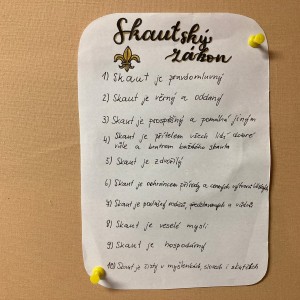 Skautský
zákon
1) Skaut je pravdomluvný
2) Skaut je věrný a oddaný
3) Skaut je prospěšný a pomáhá jiným
4) Skaut je přítelem všech lidí dobré
vůle a bratrem každého skauta
5) Skaut je zdvořilý
6) Skaut je ochráncem přírody a cenných výtvorů lidských
7) Skaut je poslušný rodičů, představených a vůdců
8) Skaut je veselé mysli
9) Skaut je hospodárný
10) Skaut je čistý v myšlenkách, slovech i skutcích